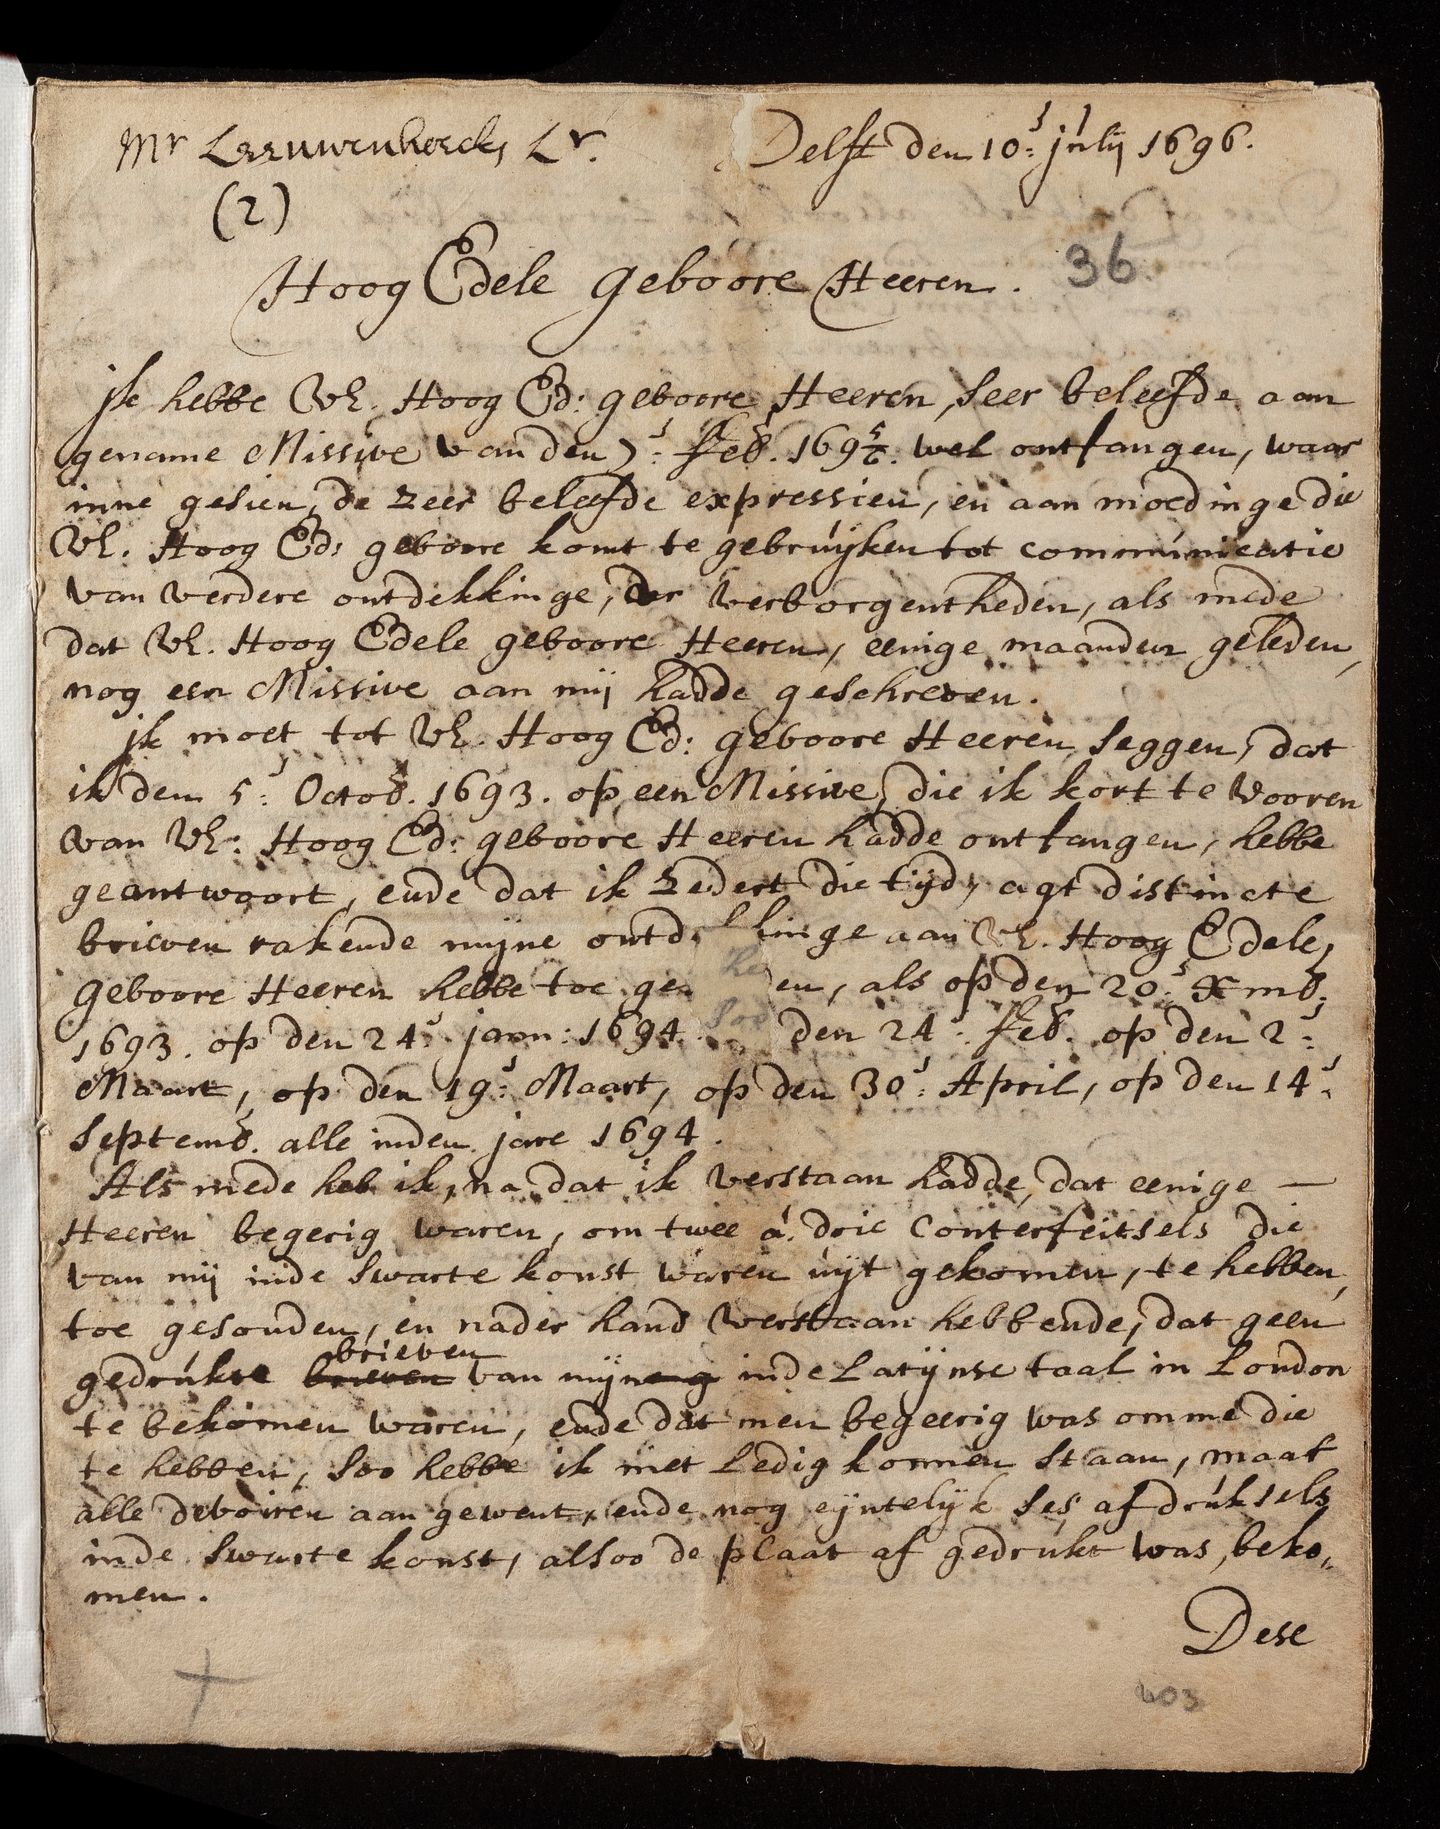 Mr Leeuwenhoecks Lr.
Delft den 10e july 1696.
(2)
Hoog Edele geboore Heeren.
36
jk hebbe VE. Hoog Ed: geboore Heeren, seer beleefde aan
gename Missive van den 7e: feb. 169 5/6. wel ontfangen, waar
inne gesien, de zeer beleefde expressien, en aan moedinge die
VE. Hoog Ed: geboore komt te gebrúyken tot commúnicatie
van verdere ontdekkinge, der verborgentheden, als mede
dat VE. Hoog Edele geboore Heeren, eenige maanden geleden,
nog een Missive aan mij hadde geschreven.
jk moet tot VE. Hoog Ed: geboore Heeren seggen, dat
ik den 5e: Octob. 1693. op een Missive, die ik kort te vooren
van VE: Hoog Ed: geboore Heeren hadde ontfangen, hebbe
geantwoort, ende dat ik zedert die tijd, agt distincte
brieven rakende mijne ontd kinge aan VE. Hoog Edele,
geboore Heeren hebbe toe ge en, als op den 20e: Xmb.
1693. op den 24e: jann: 1694. den 24e: feb. op den 2e:
Maart, op den 19e: Maart, op den 30e: April, op den 14e:
Septemb. alle inden jare 1694.
Als mede heb ik, na dat ik verstaan hadde, dat eenige —
Heeren begerig waren, om twee á drie Conterfeitsels die
van mij inde swarte konst waren uÿt gekomen, te hebben,
toe gesonden, en nader hand verstaan hebbende, dat geen
brieven
gedrúkte brieven van mijne inde Latijnse taal in London
te bekomen waren, ende dat men begeerig was omme die
te hebben, soo hebbe ik niet Ledig konnen staan, maar
alle devoiren aan gewent, ende nog eyntelijk ses afdrúksels
inde swarte konst, alsoo de plaat af gedrukt was, beko„
men.
Dese
403